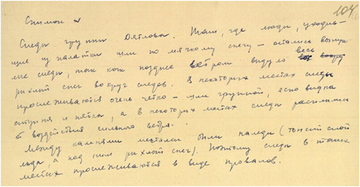 104
Снимок №
Следы группы Дятлова. Там, где люди, уходив-
шие из палатки шли по мягкому снегу – остались выпук-
лые следы, так как позднее ветром выдуло весь
рыхлый снег вокруг следов. В некоторых местах следы
прослеживаются очень четко – шли группой, ясно видна
ступня и пятка, а в некоторых местах следы расплылись
от воздействия сильного ветра.
Между камнями местами были наледи (тонкий слой
льда, а под ним рыхлый снег). Поэтому следы в таких
местах прослеживаются в виде провалов.